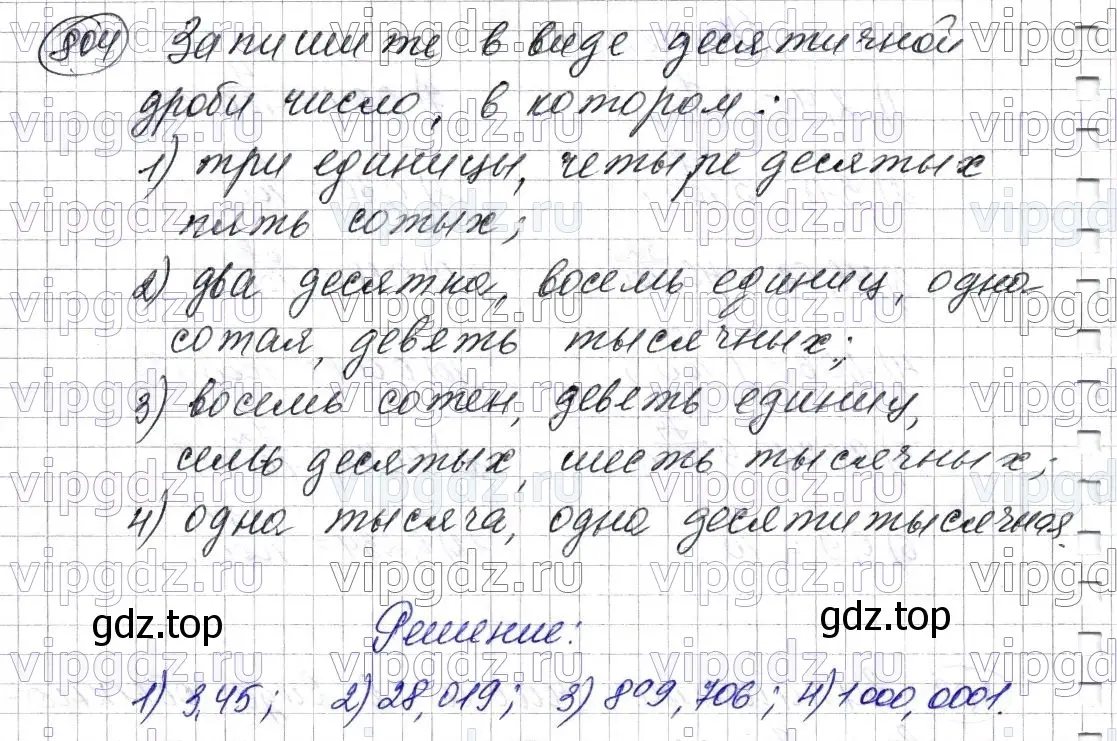 804 Запишите в виде десятичной
дроби число, в котором:
1) три единицы, четыре десятых
пять сотых;
2) два десятка, восемь единиц, одна
сотая, девять тысячных;
3) восемь сотен, девять единиц,
семь десятых, шесть тысячных;
4) одна тысяча, одна десятитысячная.
gdz.top Решение: gdz.top
1) 3,45; 2) 28,019; 3) 809,706; 4) 1000,0001.
vipgdz.ru